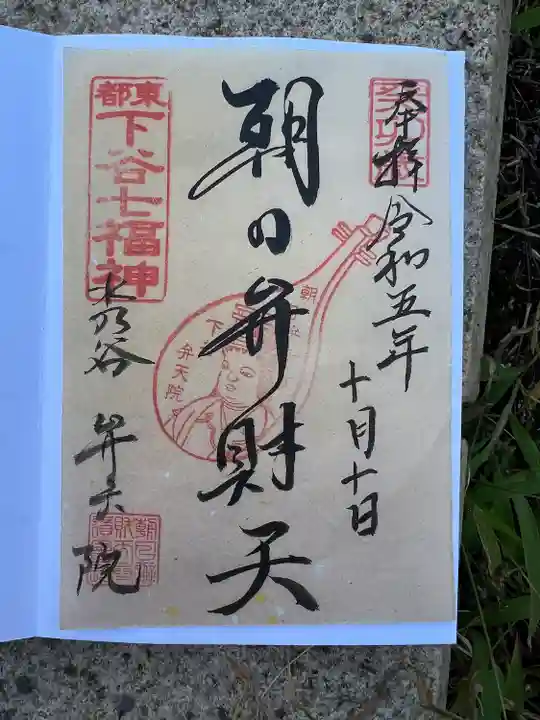 奉拝 令和五年
十月十日
朝日弁財天
東都
下谷七福神
水の谷 弁天院
弁天院